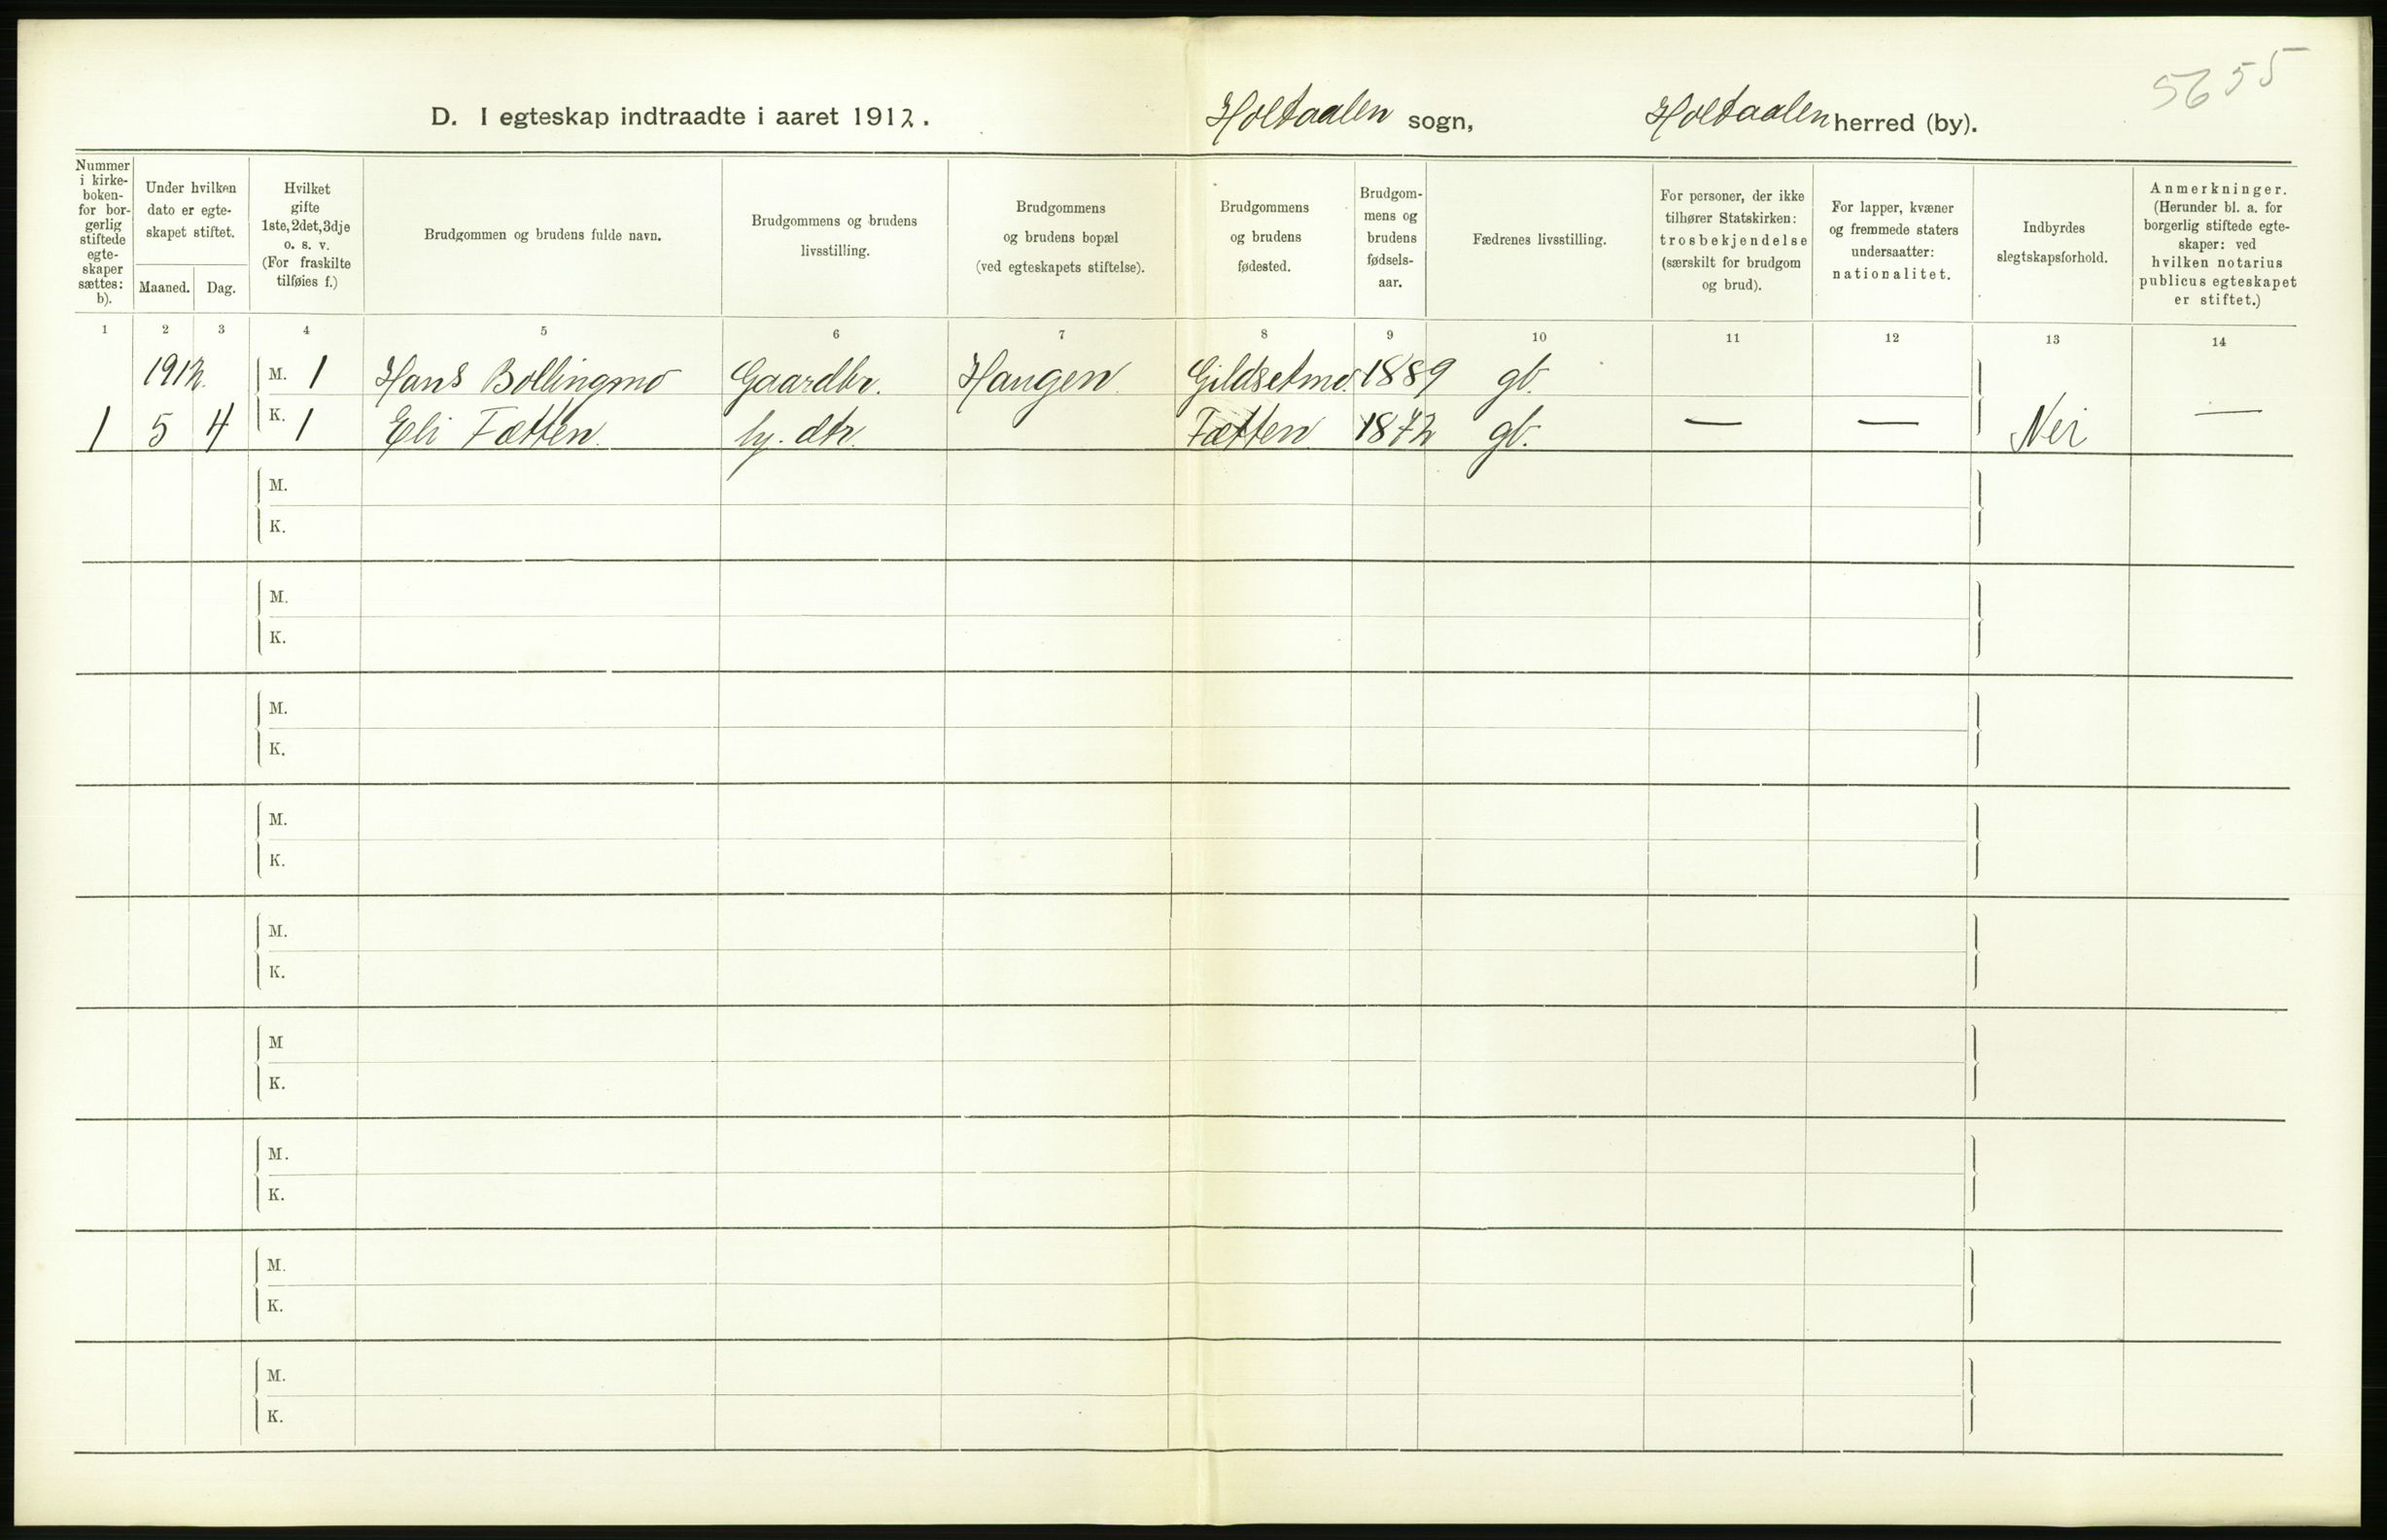 5655
D. I egteskap indtraadte i aaret 1912. Holtaalen sogn, Holtaalen herred (by).
Nummer i kirke- boken- for bor- gerlig stiftede egte- skaper sættes: b).
Under hvilken dato er egte- skapet stiftet.
Maaned. Dag.
Hvilket gifte 1ste, 2det, 3dje o. s. v. (For fraskilte tilføies f.)
Brudgommen og brudens fulde navn.
Brudgommens og brudens livsstilling.
Brudgommens og brudens bopæl (ved egteskapets stiftelse).
Brudgommens og brudens fødested.
Brudgom- mens og brudens fødsels- aar.
Fædrenes livsstilling.
For personer, der ikke tilhører Statskirken: trosbekjendelse (særskilt for brudgom og brud).
For lapper, kvæner og fremmede staters undersaatter: nationalitet.
Indbyrdes slegtskapsforhold.
Anmerkninger. (Herunder bl. a. for borgerlig stiftede egte- skaper: ved hvilken notarius publicus egteskapet er stiftet.)
1 2 3 4 5 6 7 8 9 10 11 12 13 14
1912. M. 1 Hans Bollingmo Gaardbr. Haugen Gildsetmo. 1889 gb.
1 5 4 K. 1 Eli Fætten. Fætten gb. — — Nei —
M.
K.
M.
K.
M.
K.
M.
K.
M.
K.
M
K.
M.
K.
M.
K.
M.
K.